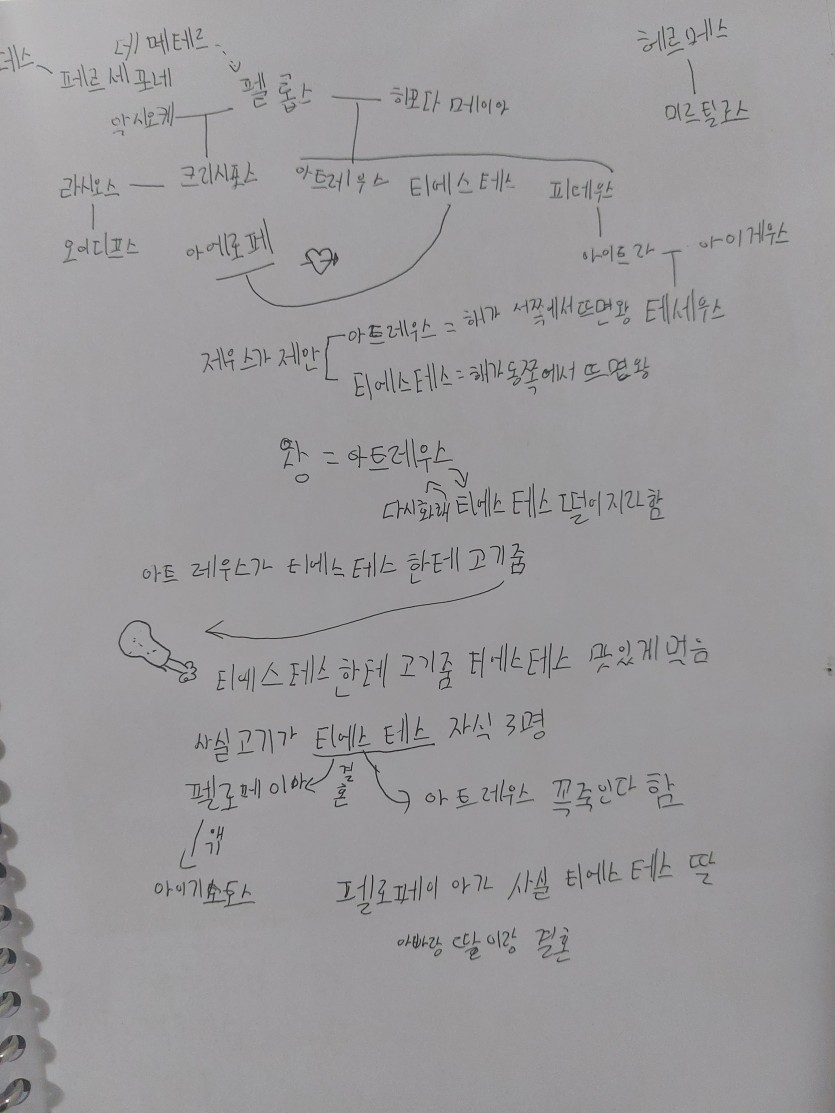 데스
데메테르
헤르메스
페르세포네
펠롭스
히포다메이아
악시오케
미르틸로스
라이오스
크리시포스
아트레우스
티에스테스
피테우스
오이디프스
아에로페
아이트라
아이게우스
테세우스
제우스가 제안
아트레우스 = 해가 서쪽에서 뜨면 왕
티에스테스 = 해가 동쪽에서 뜨면 왕
왕 = 아트레우스
다시화해 티에스테스 떨어지라함
아트레우스가 티에스테스한테 고기줌
티에스테스한테 고기줌 티에스테스 맛있게 먹음
사실 고기가 티에스테스 자식 3명
펠로페이아
결혼
아트레우스 꼭죽인다 함
애기
펠로페이아가 사실 티에스테스 딸
아빠랑 딸이랑 결혼